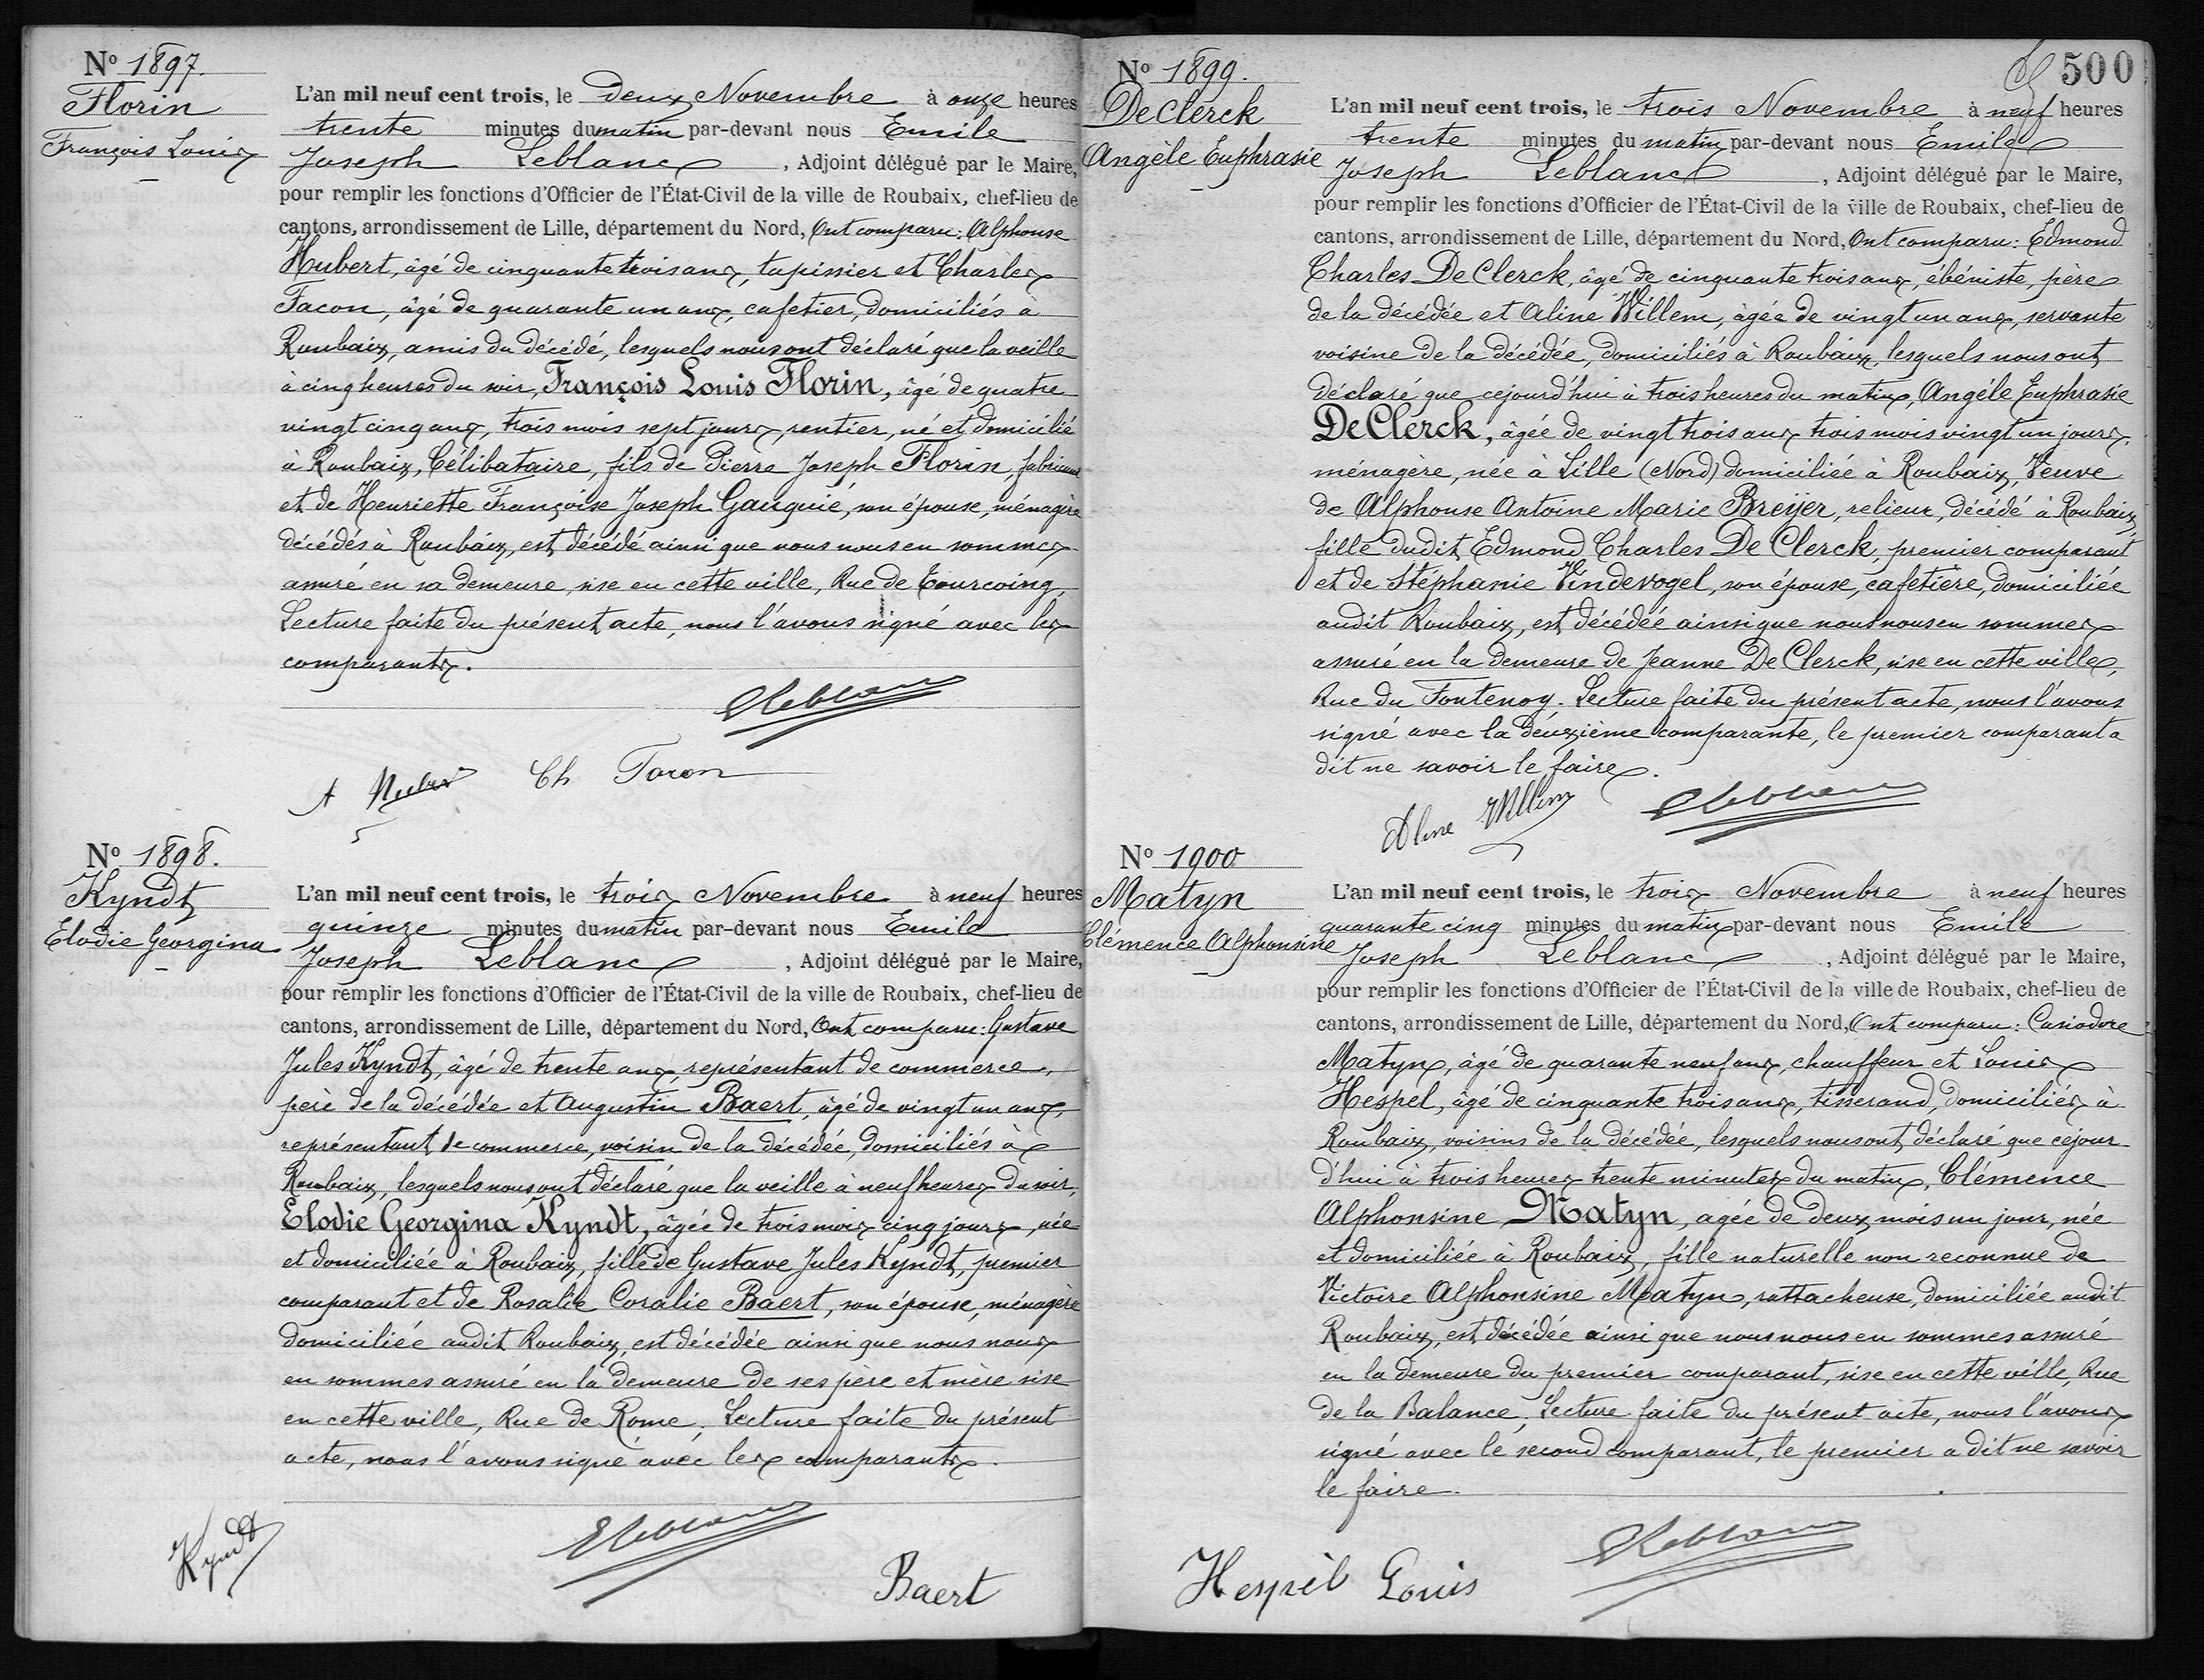 Nº 1897.
Florin
François Louis
L'an mil neuf cent trois, le deux Novembre à onze heures
trente minutes du matin par-devant nous Emile
Joseph Leblanc, Adjoint délégué par le Maire,
pour remplir les fonctions d'Officier de l'État-Civil de la ville de Roubaix, chef-lieu de
cantons, arrondissement de Lille, département du Nord, Ont comparu: Alphonse
Hubert, âgé de cinquante trois ans, tapissier et Charles
Facon, âgé de quarante un ans, cafetier, domiciliés à
Roubaix, amis du décédé, lesquels nous ont déclaré que la veille
à cinq heures du soir, François Louis Florin, âgé de quatre
vingt cinq ans, trois mois sept jours, rentier, né et domicilié
à Roubaix, Célibataire, fils de Pierre Joseph Florin, fabricant
et de Henriette Françoise Joseph Gauquié, son épouse, ménagère
décédés à Roubaix, est décédé ainsi que nous nous en sommes
assuré en sa demeure, sise en cette ville, Rue de Tourcoing,
Lecture faite du présent acte, nous l'avons signé avec les
comparants.
ELeblanc
A Hubert Ch Facon
Nº 1898.
Kyndt
Elodie Georgina
L'an mil neuf cent trois, le trois Novembre à neuf heures
quinze minutes du matin par-devant nous Emile
Joseph Leblanc, Adjoint délégué par le Maire,
pour remplir les fonctions d'Officier de l'État-Civil de la ville de Roubaix, chef-lieu de
cantons, arrondissement de Lille, département du Nord, Ont comparu: Gustave
Jules Kyndt, âgé de trente ans, représentant de commerce,
père de la décédée et Augustin Baert, âgé de vingt un ans,
représentant de commerce, voisin de la décédée, domiciliés à
Roubaix, lesquels nous ont déclaré que la veille à neuf heures du soir,
Elodie Georgina Kyndt, âgée de trois mois cinq jours, née
et domiciliée à Roubaix, fille de Gustave Jules Kyndt, premier
comparant et de Rosalie Coralie Baert, son épouse, ménagère
domiciliée audit Roubaix, est décédée ainsi que nous nous
en sommes assuré en la demeure de ses père et mère sise
en cette ville, Rue de Rome. Lecture faite du présent
acte, nous l'avons signé avec les comparants.
Kyndt
ELeblanc
Baert
500
Nº 1899.
De Clerck
Angèle Euphrasie
L'an mil neuf cent trois, le trois Novembre à neuf heures
trente minutes du matin par-devant nous Emile
Joseph Leblanc, Adjoint délégué par le Maire,
pour remplir les fonctions d'Officier de l'État-Civil de la ville de Roubaix, chef-lieu de
cantons, arrondissement de Lille, département du Nord, Ont comparu: Edmond
Charles De Clerck, âgé de cinquante trois ans, ébéniste, père
de la décédée et Aline Willem, âgée de vingt un ans, servante
voisine de la décédée, domiciliés à Roubaix, lesquels nous ont
déclaré que cejourd'hui à trois heures du matin, Angèle Euphrasie
De Clerck, âgée de vingt trois ans trois mois vingt un jours,
ménagère, née à Lille (Nord) domiciliée à Roubaix, Veuve
de Alphonse Antoine Marie Breijer, relieur, décédé à Roubaix,
fille dudit Edmond Charles De Clerck, premier comparant
et de Stéphanie Vindevogel, son épouse, cafetière, domiciliée
audit Roubaix, est décédée ainsi que nous nous en sommes
assuré en la demeure de Jeanne De Clerck, sise en cette ville,
Rue du Fontenoy. Lecture faite du présent acte, nous l'avons
signé avec la deuxième comparante, le premier comparant a
dit ne savoir le faire.
Aline Willem ELeblanc
Nº 1900
Matyn
Clémence Alphonsine
L'an mil neuf cent trois, le trois Novembre à neuf heures
quarante cinq minutes du matin par-devant nous Emile
Joseph Leblanc, Adjoint délégué par le Maire,
pour remplir les fonctions d'Officier de l'État-Civil de la ville de Roubaix, chef-lieu de
cantons, arrondissement de Lille, département du Nord, Ont comparu: Casiodore
Matyn, âgé de quarante neuf ans, chauffeur et Louis
Hespel, âgé de cinquante trois ans, tisserand, domiciliés à
Roubaix, voisins de la décédée, lesquels nous ont déclaré que cejour-
d'hui à trois heures trente minutes du matin, Clémence
Alphonsine Matyn, agée de deux mois un jour, née
et domiciliée à Roubaix, fille naturelle non reconnue de
Victoire Alphonsine Matyn, rattacheuse, domiciliée audit
Roubaix, est décédée ainsi que nous nous en sommes assuré
en la demeure du premier comparant, sise en cette ville, Rue
de la Balance. Lecture faite du présent acte, nous l'avons
signé avec le second comparant, le premier a dit ne savoir
le faire.
ELeblanc
Hespèl Louis